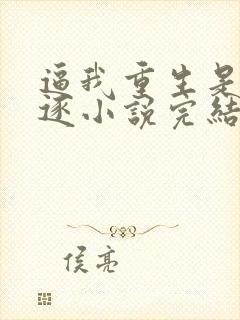 逼我重生是
逐小說完結
侯亮